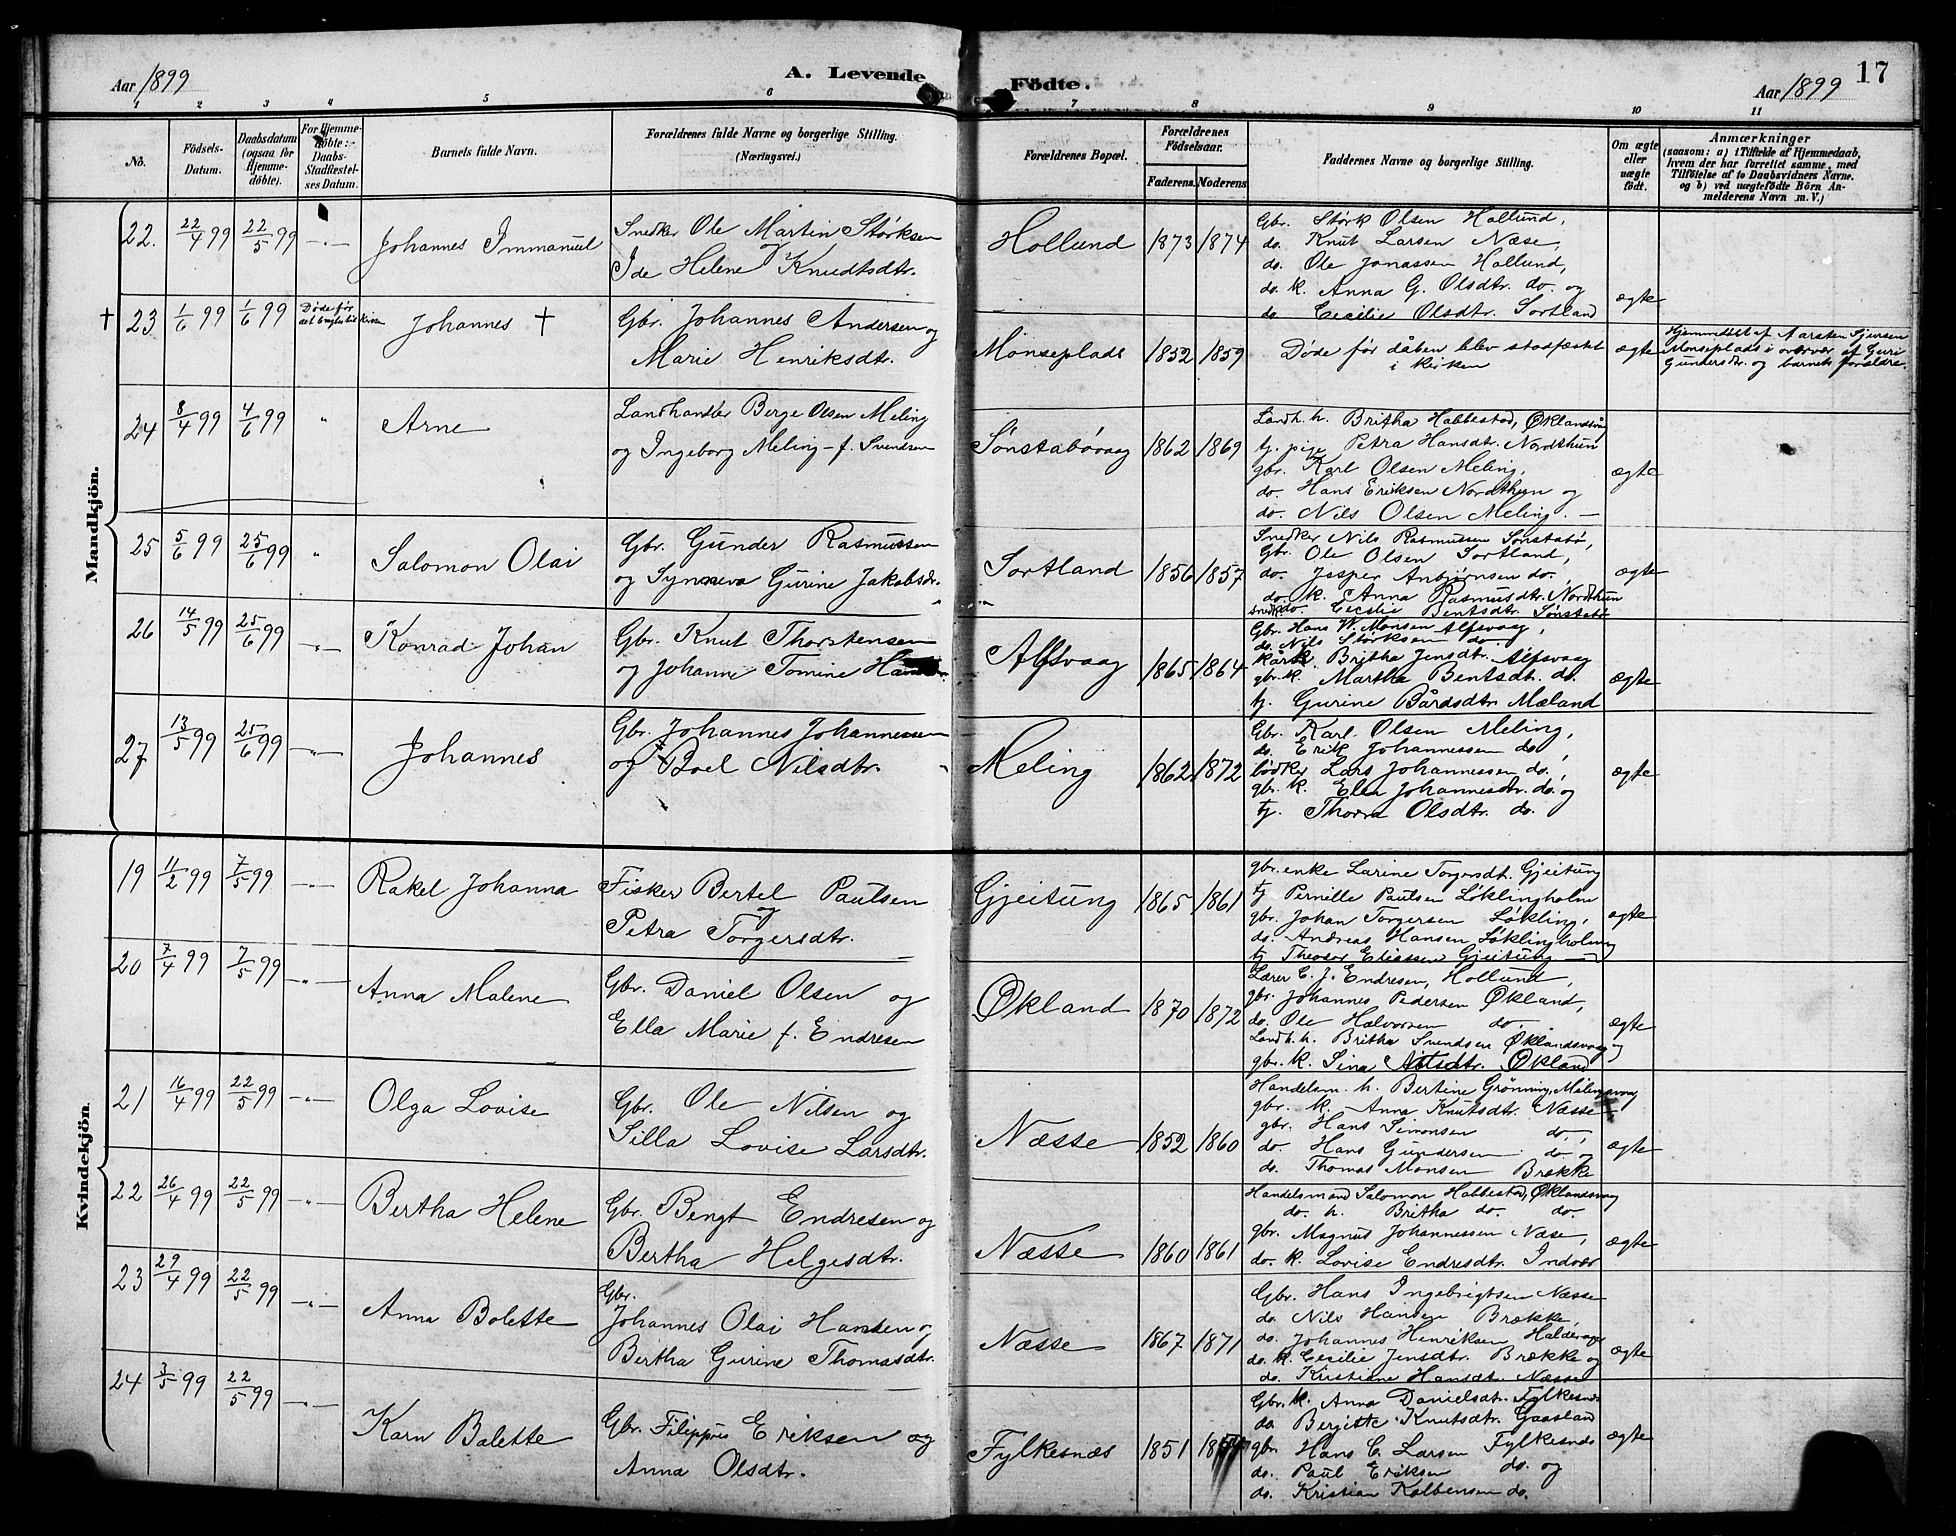 Aar 1899
A. Levende
Födte.
Aar 1899
17
1 2 3 4 5 6 7 8 9 10 11
No.
Födsels-Datum.
Daabsdatum (ogsaa for Hjemme-döbte).
For Hjemme-döbte: Daabs-Stadfæstel-ses Datum.
Barnets fulde Navn.
Forældrenes fulde Navne og borgerlige Stilling. (Næringsvei.)
Forældrenes Bopæl.
Forældrenes Födselsaar.
Faderens. Moderens
Faddernes Navne og borgerlige Stilling.
Om ægte eller uægte födt.
Anmærkninger
(saasom: a) i Tilfælde af Hjemmedaab, hvem der har forrettet samme, med Tilföielse af to Daabsvidners Navne, og b) ved uægtefödte Börn An-melderens Navn m. V.)
Mandkjön.
22. 22/4 99 22/5 99 -"- Johannes Immanuel
Snedker Ole Martin Størksen
Ide Helene Knudtsdtr.
Hollund 1873 1874
Gbr. Størk Olsen Hollund,
do. Knut Larsen Næse,
do. Ole Jonassen Hollund,
do. k. Anna G. Olsdtr. do. og
do Cecilie Olsdtr. Sortland
ægte
† 23 1/6 99 1/6 99 Johannes †
Gbr. Johannes Andersen og
Marie Henriksdtr.
Monseplads 1852 1859
Døde før dåben blev stadfæstet
i kirken
ægte
Hjemmedøbt af Aarsten Sjursen
Monseplads i overvær af Guri
Gundersdtr. og barnets forældre.
24 8/4 99 4/6 99 " Arne
Landhandler Berge Olsen Meling
og Ingeborg Meling - f. Svendsen
Sønstabøvaag 1862 1869
Landh. h. Britha Habbestad, Øklandsvåg
tj. pige Petra Hansdtr. Nordthun
gbr. Karl Olsen Meling,
do. Hans Eriksen Nordthun og
do. Nils Olsen Meling. -
ægte
25 5/6 99 25/6 99 " Salomon Olai
Gbr. Gunder Rasmussen
og Synneva Gurine Jakobsdr.
Sortland 1856 1857
Snedker Nils Rasmussen Sønstabø,
Gbr. Ole Olsen Sortland,
do. Jesper Anbjørnsen do.,
do. k. Anna Rasmusdtr. Nordthun
snedk. do. Cecilie Bentsdtr. Sønstabø
ægte
26 14/5 99 25/6 99 -"- Konrad Johan
Gbr. Knut Thorstensen
og Johanne Tomine
Alfsvaag 1865 1864
Gbr. Hans W. Monsen Alfsvaag,
do. Nils Størksen do
Britha Jensdtr. Alfsvaag
gbr. k. Martha Bentsdtr. do.
tj. Gurine Bårdsdtr. Mæland
ægte
27 13/5 99 25/6 99 -"- Johannes
Gbr. Johannes Johannessen
og Boel Nilsdtr.
Meling 1862 1872
Gbr. Karl Olsen Meling,
do. Erik Johannessen do.
bødker Lars Johannessen do.,
gbr. k. Elen Johannesdtr. do. og
tj. Thorra Olsdtr. do.
ægte
Kvindekjön.
19 11/2 99 7/5 99 -"- Rakel Johanna
Fisker Bertel Paulsen
og
Petra Torgersdtr.
Gjeitung 1865 1861
gbr. enke Larine Torgersdt. Gjeitung
tj Pernille Paulsen Løklingholm
gbr. Johan Torgersen Løkling,
do. Andreas Hansen Løklingholm
tj Theodor Eliassen Gjeitung
ægte
20 7/4 99 7/5 99 -"- Anna Malene
Gbr. Daniel Olsen og
Ella Marie f. Endresen
Økland 1870 1872
Lærer C. J. Endresen, Hollund,
gbr. Johannes Pedersen Økland,
do. Ole Halvorsen do.
Landh. h. Britha Svendsen Øklandsvaag
gbr. k. Sina Økland
ægte
21 16/4 99 22/5 99 -"- Olga Lovise
Gbr. Ole Nilsen og
Silla Lovise Larsdtr.
Næsse 1852 1860
Handelsm. h. Bertine Grønning,
gbr. k. Anna Knutsdtr. Næsse
gbr. Hans Simonsen do.,
do. Hans Gundersen do. og
do. Thomas Monsen Brække
ægte
22 26/4 99 22/5 99 -"- Bertha Helene
Gbr. Bengt Endresen og
Bertha Helgesdtr.
Næsse 1860 1861
Handelsmand Salomon Habbestad, Øklandsvaag
do. h. Britha do. do.
gbr. Magnus Johannessen Næse,
do. k. Lovise Endresdtr. Indvær
ægte
23 29/4 99 22/5 99 -"- Anna Bolette
Gbr.
Johannes Olai Hansen og
Bertha Gurine Thomasdtr.
Næsse 1867 1871
Gbr. Hans Ingebrigtsen Næsse
do. Nils Hansen Brække,
do. Johannes Henriksen
do. k. Cecilie Jensdtr. Brække og
do. Kristiane Hansdt. Næsse
ægte
24 3/5 99 22/5 99 -"- Karn Bolette
Gbr. Filippus Eriksen og
Anna Olsdtr.
Fylkesnæs 1851
Gbr. k. Anna Danielsdtr. Fylkesnæs
do. Bergitte Knutsdtr. Gaasland
gbr. Hans C. Larsen Fylkesnæs
do. Paul Eriksen do. og
do. Kristian Kolbensen do.
ægte